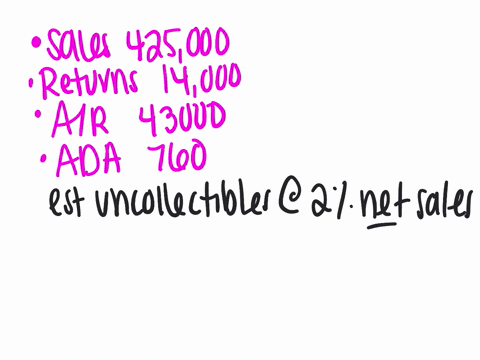 • Sales 425,000
• Returns 14,000
• A/R 43000
• ADA 760
est uncollectibles @ 2% net sales